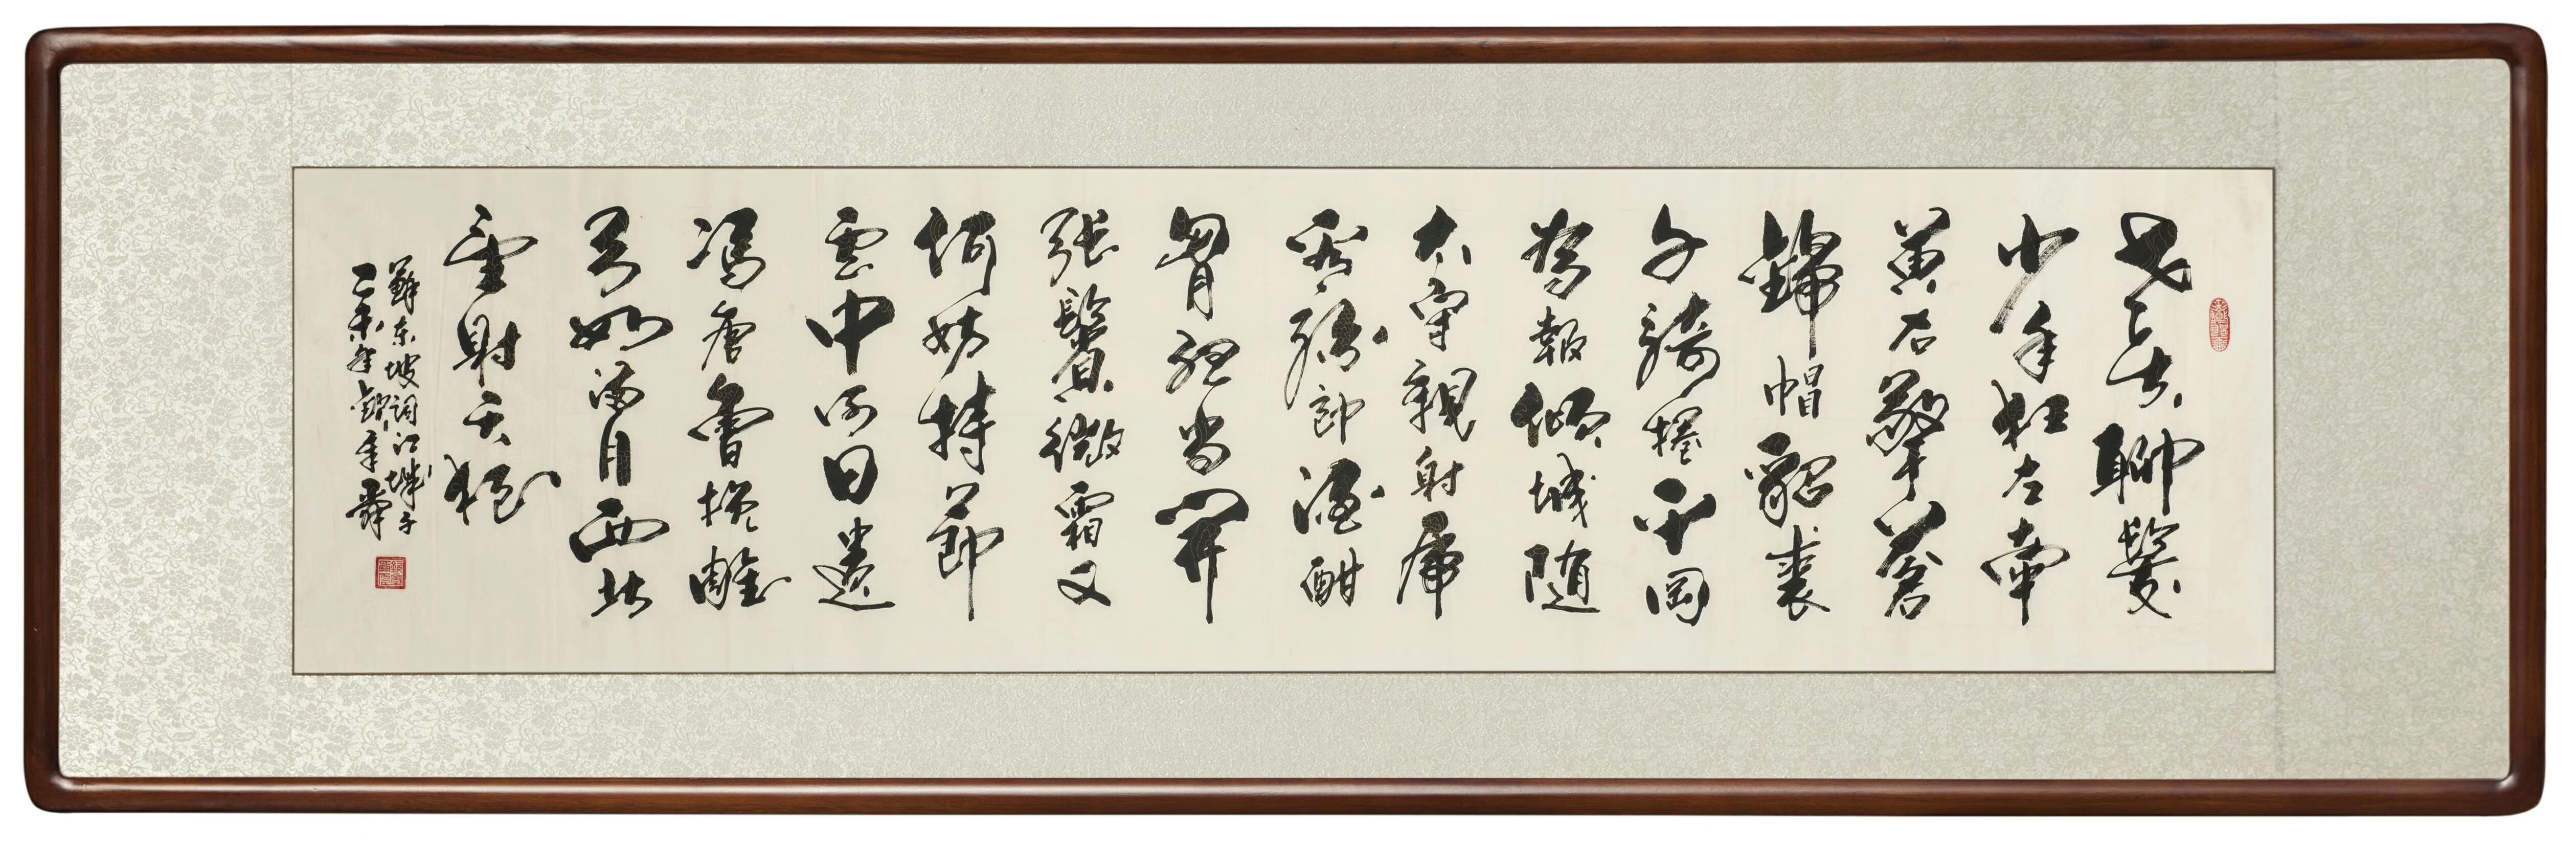 老夫聊發
少年狂左牽
黃右擎蒼
錦帽貂裘
千騎捲平岡
為報傾城隨
太守親射虎
看孫郎酒酣
胷膽尚開
張鬢微霜又
何妨持節
雲中何日遣
馮唐會挽雕
弓如滿月西北
望射天狼
蘇東坡詞江城子
乙未年